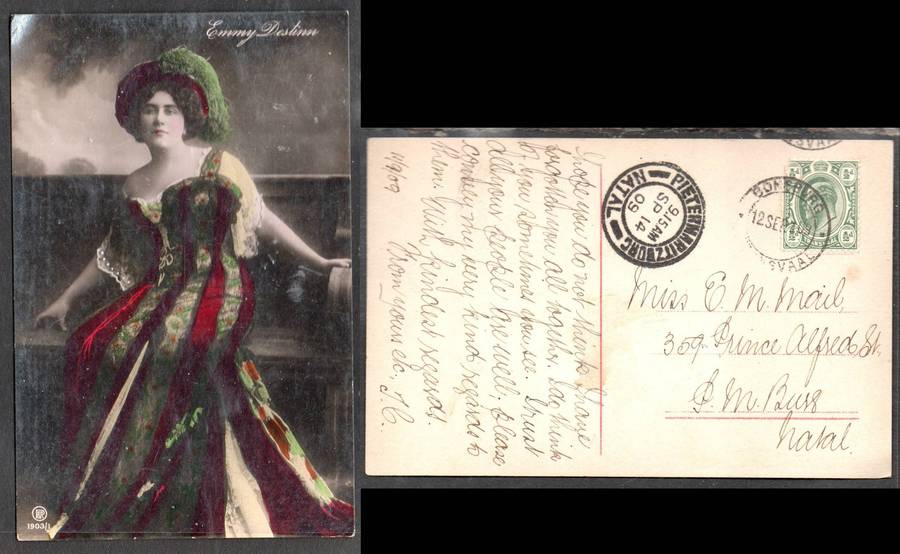 Emmy Destinn
1903/1
I hope you do not think I have
forgotten you all together. I do think
of you sometimes, you see. Trust
all your people are well, please
convey my very kind regards to
them. With kindest regards.
From yours etc,
11/9/09
PIETERMARITZBURG
NATAL
9.15 AM
SP 14
09
12 SE
SVAAL
Miss E. M. Mail,
359 Prince Alfred St.
P. M. Burg
Natal.